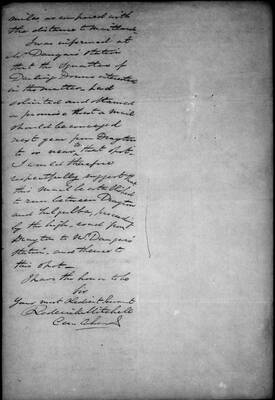 miles as compared with
the distance to Maitland
I was informed at
Mr Dangar's Station
that the Squatters of
Darling Downs interested
in the matter, had
solicited and obtained
a promise that a mail
should be conveyed
next year from Drayton
to or near, that spot.
I would therefore
respectfully suggest that
this Mail be established
to run between Drayton
and
by the high road from
Drayton to Mr Dangar's
Station, and thence to
this Spot.
I have the honor to be
Sir
Your most Obedient Servant
Roderick Mitchell